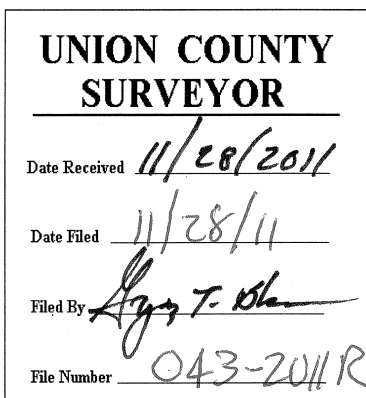 UNION COUNTY
SURVEYOR
Date Received 11/28/2011
Date Filed 11/28/11
Filed By T.
File Number 043-2011R